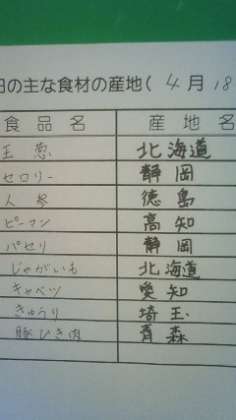 日の主な食材の産地( 4月18
食品名 産地名
玉葱 北海道
セロリー 静岡
人参 徳島
ピーマン 高知
パセリ 静岡
じゃがいも 北海道
キャベツ 愛知
きゅうり 埼玉
豚ひき肉 青森